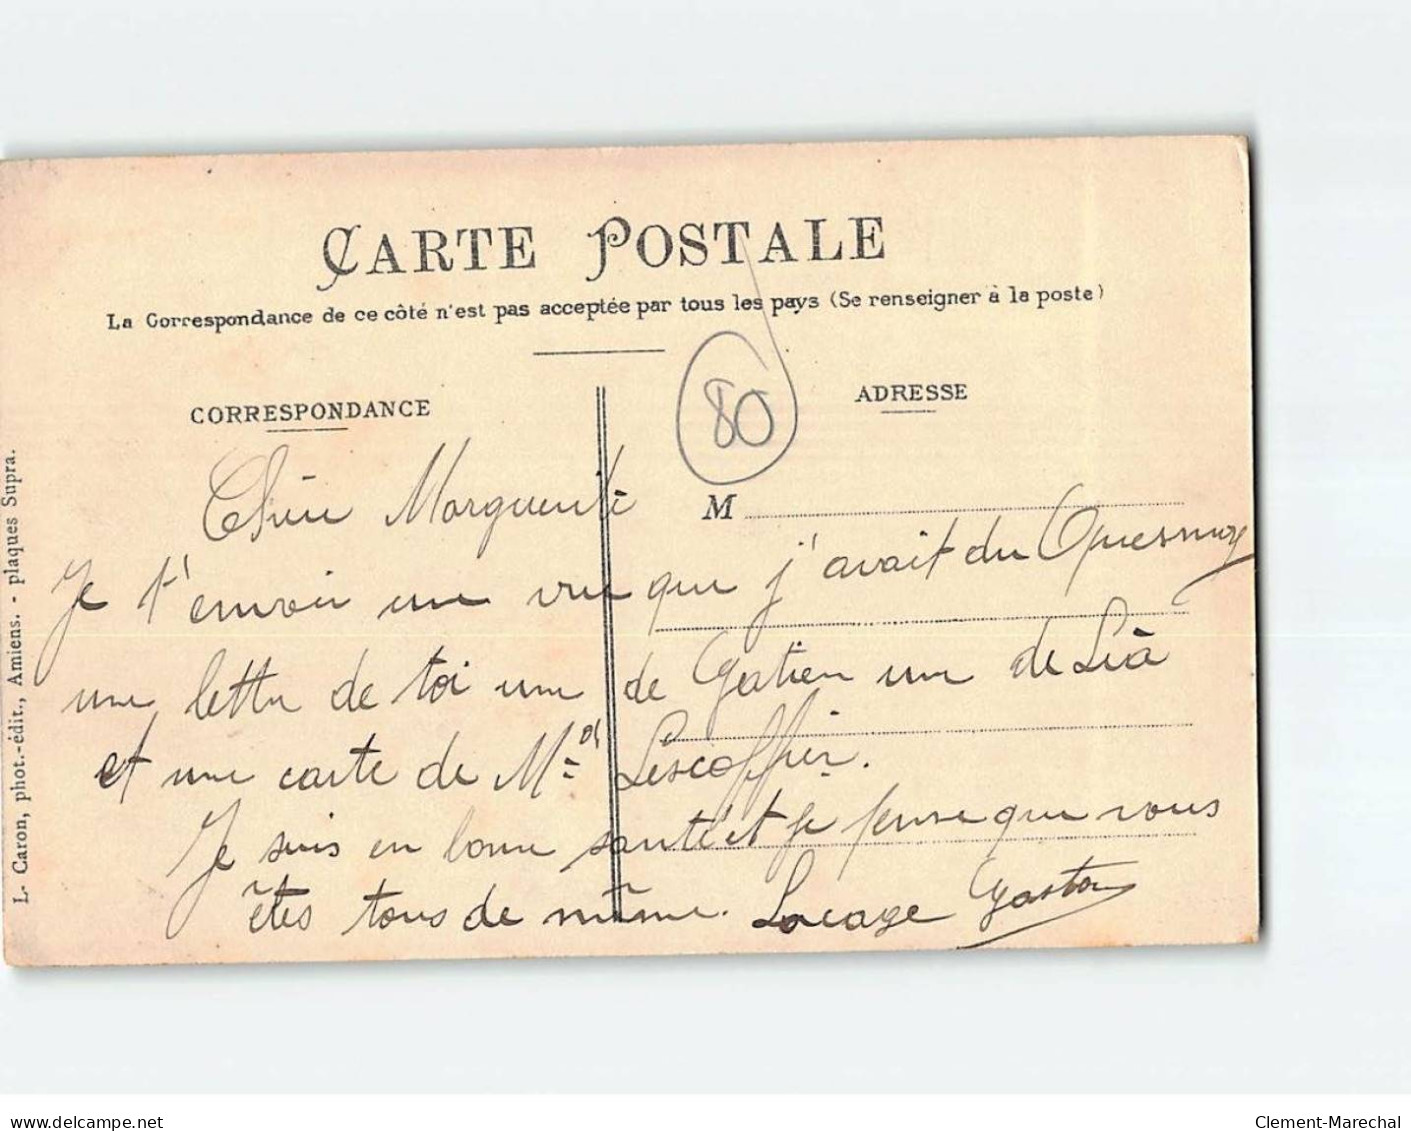 CARTE POSTALE
La Correspondance de ce côté n'est pas acceptée par tous les pays (Se renseigner à la poste)
80
CORRESPONDANCE
ADRESSE
M
Chère Marguerite
Je t'envoie une vue que j'avait du Quesnoy
une lettre de toi une de Gatien une de Lià
et une carte de Lescoffier.
Je suis en bonne santé et je pense que vous
êtes tous de même. Lacaye Gaston
L. Caron, phot.-édit., Amiens. - plaques Supra.
www.delcampe.net
Clement-Marechal